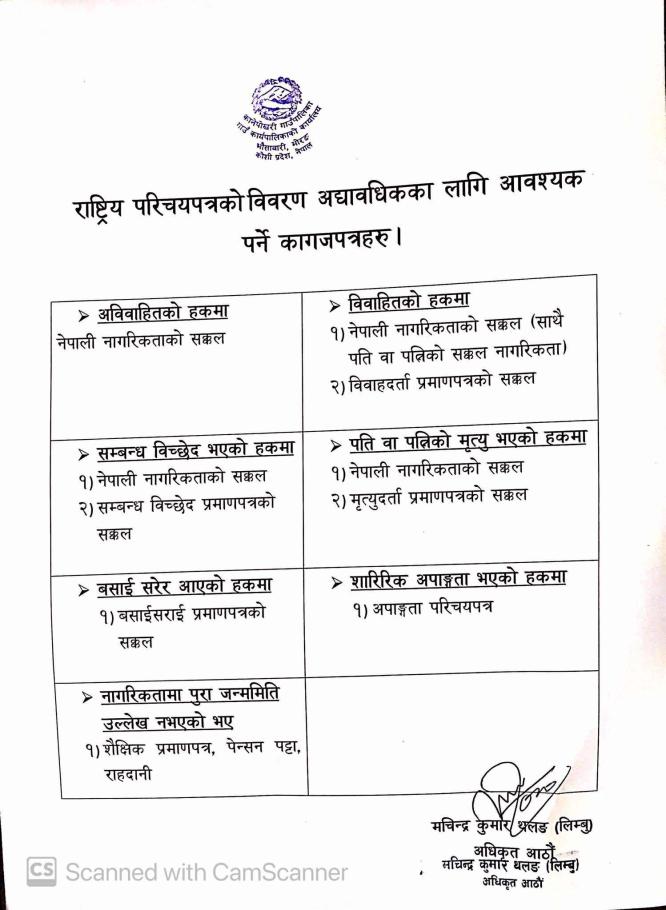 कानेपोखरी गाउँपालिका
गाउँ कार्यपालिकाको कार्यालय
भौसाबारी, मोरङ
कोशी प्रदेश, नेपाल
राष्ट्रिय परिचयपत्रको विवरण अद्यावधिकका लागि आवश्यक
पर्ने कागजपत्रहरु।
➤ अविवाहितको हकमा
नेपाली नागरिकताको सक्कल
➤ विवाहितको हकमा
१) नेपाली नागरिकताको सक्कल (साथै
पति वा पत्निको सक्कल नागरिकता)
२) विवाहदर्ता प्रमाणपत्रको सक्कल
➤ सम्बन्ध विच्छेद भएको हकमा
१) नेपाली नागरिकताको सक्कल
२) सम्बन्ध विच्छेद प्रमाणपत्रको
सक्कल
➤ पति वा पत्निको मृत्यु भएको हकमा
१) नेपाली नागरिकताको सक्कल
२) मृत्युदर्ता प्रमाणपत्रको सक्कल
➤ बसाई सरेर आएको हकमा
१) बसाईसराई प्रमाणपत्रको
सक्कल
➤ शारिरिक अपाङ्गता भएको हकमा
१) अपाङ्गता परिचयपत्र
➤ नागरिकतामा पुरा जन्ममिति
उल्लेख नभएको भए
१) शैक्षिक प्रमाणपत्र, पेन्सन पट्टा,
राहदानी
मचिन्द्र कुमार थलङ (लिम्बु)
अधिकृत आठौं
मचिन्द्र कुमार थलङ (लिम्बु)
अधिकृत आठौं
CS Scanned with CamScanner